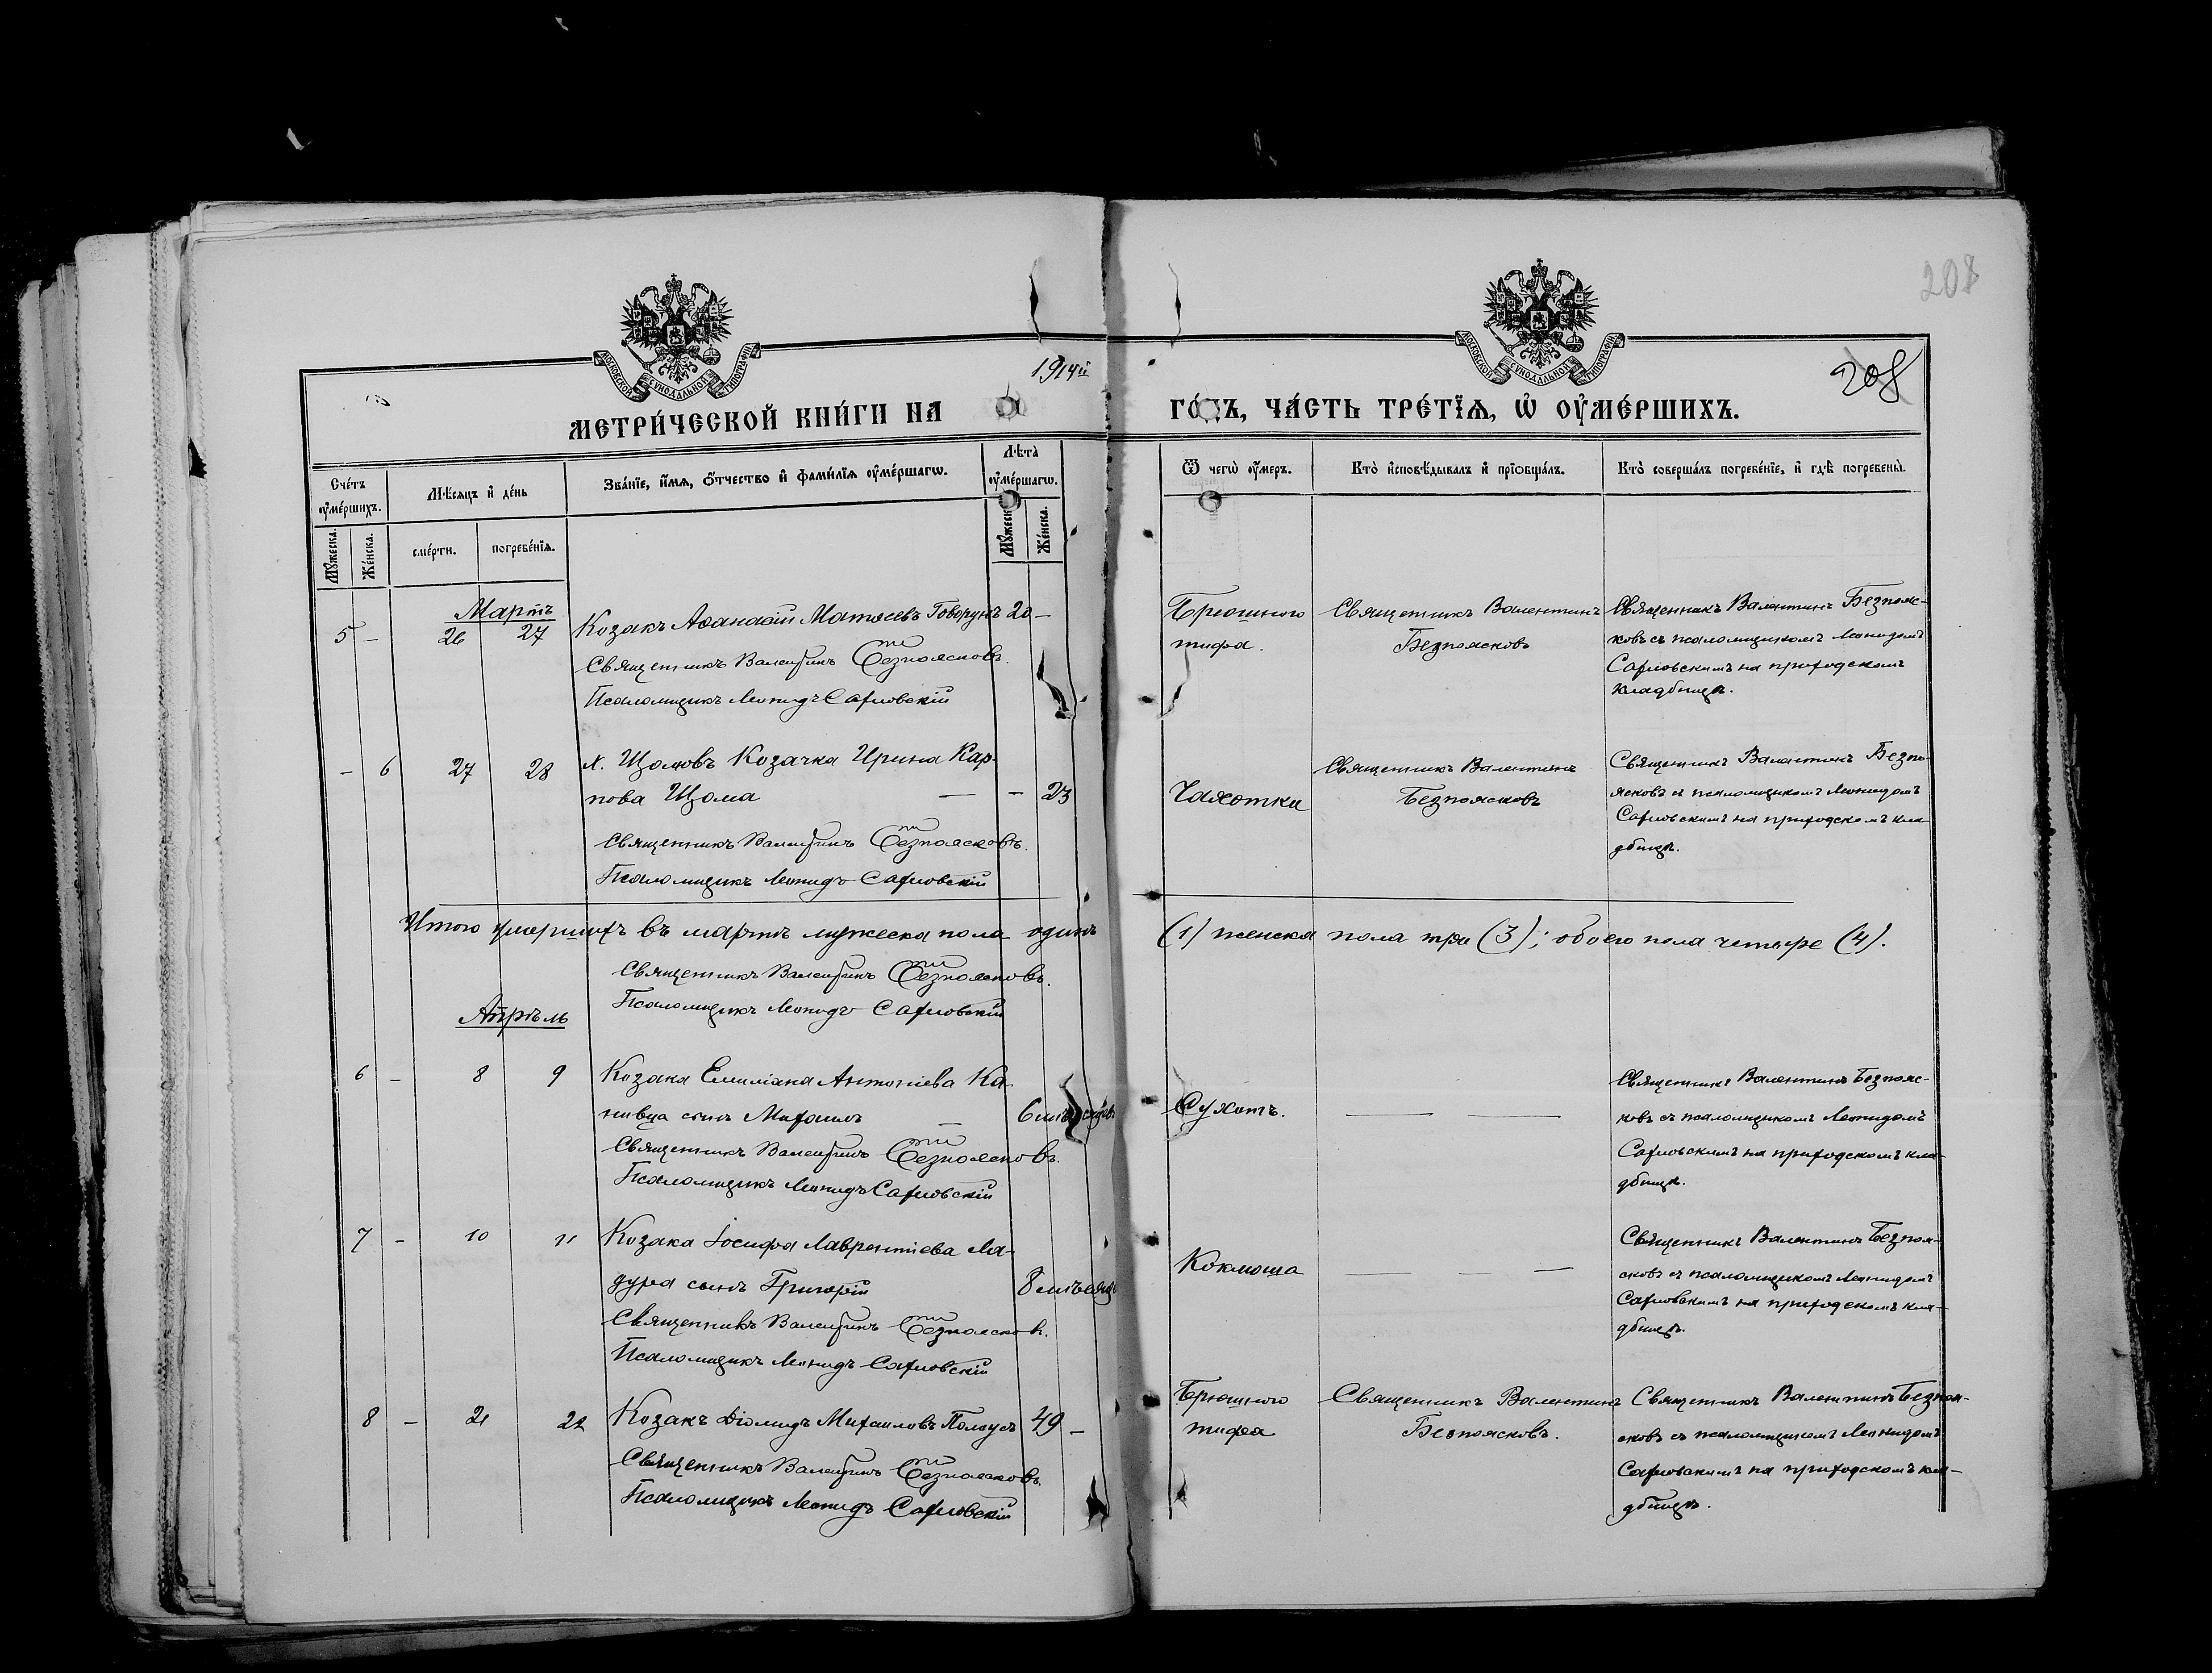 208
МОСКОВСКОЙ СУНОДАЛЬНОЙ ТИПОГРАФІИ
МОСКОВСКОЙ СУНОДАЛЬНОЙ ТИПОГРАФІИ
1914й
208
МЕТРИ́ЧЕСКОЙ КНИ́ГИ НА
ГО́ДЪ, ЧА́СТЬ ТРЕ́ТЇѦ, Ѡ҆ ОУ҆МЕ́РШИХЪ.
Сче́тъ оу҆ме́ршихъ.
Мꙋ́жеска.
Же́нска.
Мѣ́сѧцъ и҆ де́нь
сме́рти.
погребе́нїѧ.
Зва́нїе, и҆́мѧ, ѻ҆́тчество и҆ фами́лїѧ оу҆ме́ршагѡ.
Лѣ́та оу҆ме́ршагѡ.
Мꙋ́жеск
Же́нска.
Ѿ чегѡ̀ оу҆́меръ.
Кто̀ и҆сповѣ́дывалъ и҆ прїѡбща́лъ.
Кто̀ соверша́лъ погребе́нїе, и҆ гдѣ̀ погребены̀.
Мартъ
5 - 26 27 Козакъ Аѳанасій Матѳеевъ Говорунъ 20 -
Священникъ Валентинъ Безпоясковъ.
Псаломщикъ Леонидъ Сахновскій
Брюшного
тифа.
Священникъ Валентинъ
Безпоясковъ
Священникъ Валентинъ Безпояс-
ковъ съ псаломщикомъ Леонидомъ
Сахновскимъ на приходскомъ
кладбищѣ.
- 6 27 28 х. Щомовъ Козачка Ирина Кар-
пова Щома — - 23
Священникъ Валентинъ Безпоясковъ.
Псаломщикъ Леонидъ Сахновскій
Чахотки
Священникъ Валентинъ
Безпоясковъ
Священникъ Валентинъ Безпо-
ясковъ съ псаломщикомъ Леонидомъ
Сахновскимъ на приходскомъ кла-
дбищѣ.
Итого умершихъ въ мартѣ мужеска пола одинъ (1) женска пола три (3); обоего пола четыре (4).
Священникъ Валентинъ Безпоясковъ.
Псаломщикъ Леонидъ Сахновскій
Апрѣль
6 - 8 9 Козака Емиліана Антоніева Ка-
нивца сынъ Михаилъ — 6 мѣсяцевъ
Священникъ Валентинъ Безпоясковъ.
Псаломщикъ Леонидъ Сахновскій
Сухотъ. — —
Священникъ Валентинъ Безпояс-
ковъ съ псаломщикомъ Леонидомъ
Сахновскимъ на приходскомъ кла-
дбищѣ.
7 - 10 11 Козака Іосифа Лаврентіева Ма-
дура сынъ Григорій 8 мѣсяц.
Священникъ Валентинъ Безпоясков.
Псаломщикъ Леонидъ Сахновскій
Коклюша — — —
Священникъ Валентинъ Безпоя-
сковъ съ псаломщикомъ Леонидомъ
Сахновскимъ на приходскомъ кла-
дбищѣ.
8 - 21 22 Козакъ Діомидъ Михаиловъ Полоусъ 49 -
Священникъ Валентинъ Безпоясковъ.
Псаломщикъ Леонидъ Сахновскій
Брюшного
тифа
Священникъ Валентинъ
Безпоясковъ.
Священникъ Валентинъ Безпоя-
сковъ съ псаломщикомъ Леонидомъ
Сахновскимъ на приходскомъ кла-
дбищѣ.